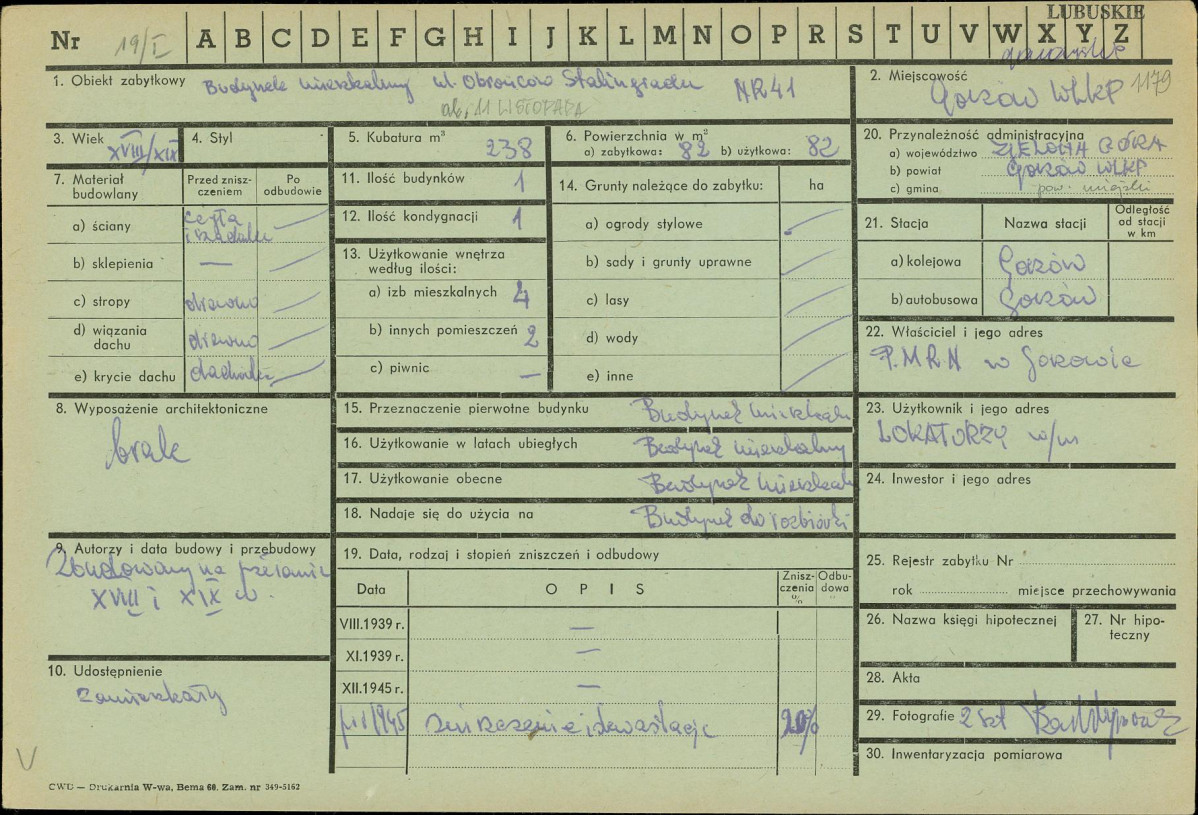 LUBUSKIE
Nr 19/I A B C D E F G H I J K L M N O P R S T U V W X Y Z
gorzowskie
1. Obiekt zabytkowy Budynek mieszkalny ul. Obrońców Stalingradu NR 41
ob. 11 LISTOPADA
2. Miejscowość
Gorzów WLKP 1179
3. Wiek XVIII/XIX
4. Styl
5. Kubatura m³ 238
6. Powierzchnia w m²
a) zabytkowa: 82 b) użytkowa: 82
20. Przynależność administracyjna
a) województwo ZIELONA GÓRA
b) powiat Gorzów WLKP
c) gmina pow. miejski
7. Materiał budowlany
Przed zniszczeniem
Po odbudowie
a) ściany cegła
b) sklepienia —
c) stropy drewno
d) wiązania dachu drewno
e) krycie dachu dachówka
11. Ilość budynków 1
12. Ilość kondygnacji 1
13. Użytkowanie wnętrza
według ilości:
a) izb mieszkalnych 4
b) innych pomieszczeń 2
c) piwnic —
14. Grunty należące do zabytku: ha
a) ogrody stylowe
b) sady i grunty uprawne
c) lasy
d) wody
e) inne
21. Stacja Nazwa stacji Odległość od stacji w km
a) kolejowa Gorzów
b) autobusowa Gorzów
22. Właściciel i jego adres
P.M.R.N w Gorzowie
8. Wyposażenie architektoniczne
brak
15. Przeznaczenie pierwotne budynku Budynek mieszkaln
16. Użytkowanie w latach ubiegłych Budynek mieszkalny
17. Użytkowanie obecne Budynek mieszkaln
18. Nadaje się do użycia na Budynek do rozbiórki
23. Użytkownik i jego adres
LOKATORZY w/m
24. Inwestor i jego adres
9. Autorzy i data budowy i przebudowy
Zbudowany na przełomie
XVIII i XIX w.
10. Udostępnienie
zamieszkały
19. Data, rodzaj i stopień zniszczeń i odbudowy
Data OPIS Zniszczenia % Odbudowa "
VIII.1939 r. —
XI.1939 r. —
XII.1945 r. —
1945 i dewastacje 20%
25. Rejestr zabytku Nr
rok miejsce przechowywania
26. Nazwa księgi hipotecznej
27. Nr hipoteczny
28. Akta
29. Fotografie 2 szt
30. Inwentaryzacja pomiarowa
V
CWD — Drukarnia W-wa, Bema 60. Zam. nr 349-5162